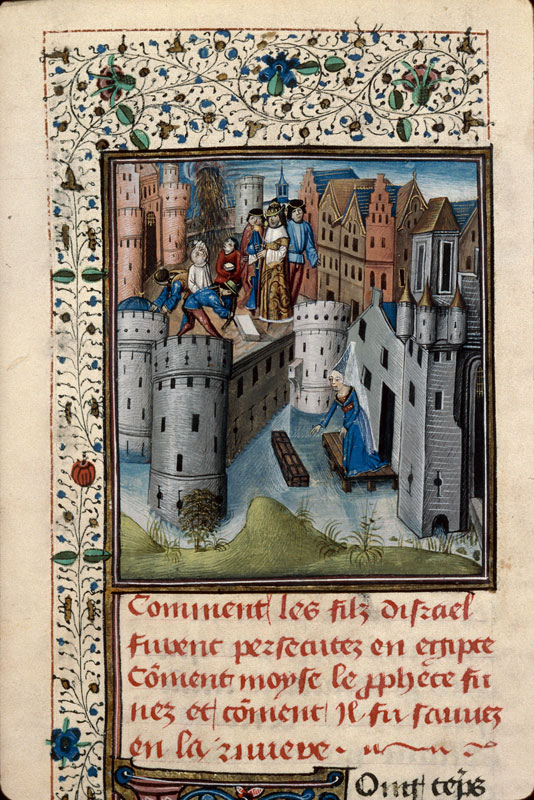 Comment les filz disrael
furent persecutez en egipte
Cõment moyse le ꝓphete fu
nez et cõment Il fu sauuez
en la riuiere.
Ouit tẽps